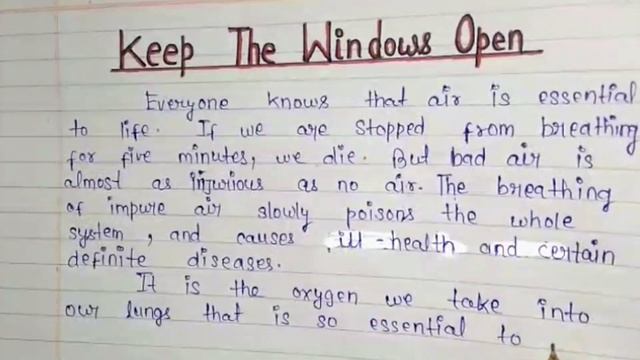 Keep The Windows Open
Everyone knows that air is essential
to life. If we are stopped from breathing
for five minutes, we die. But bad air is
almost as injurious as no air. The breathing
of impure air slowly poisons the whole
system, and causes ill-health and certain
definite diseases.
It is the oxygen we take into
our lungs that is so essential to